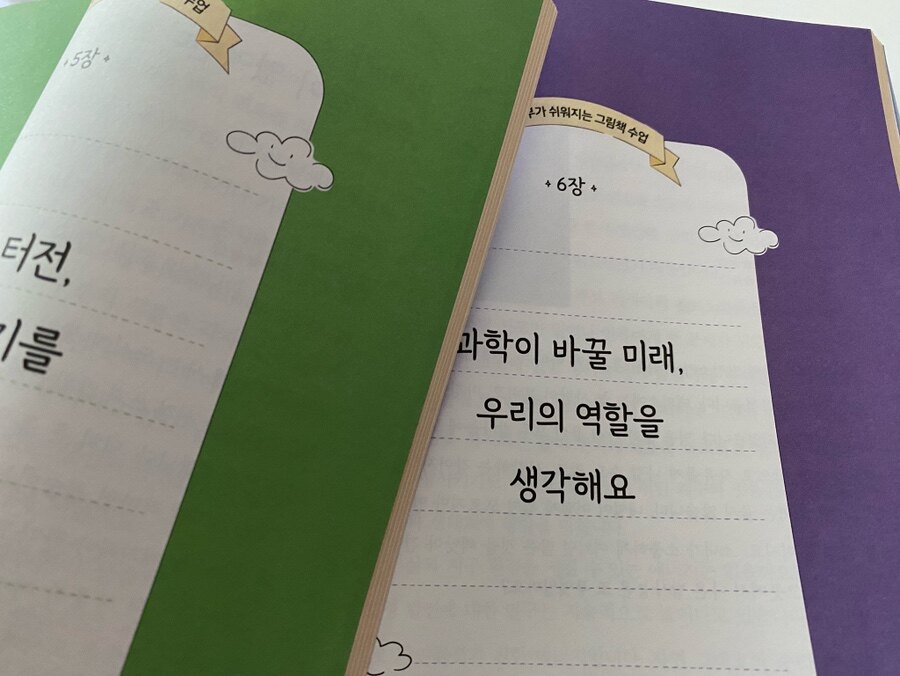 수업
5장
터전,
기를
가 쉬워지는 그림책 수업
6장
과학이 바꿀 미래,
우리의 역할을
생각해요